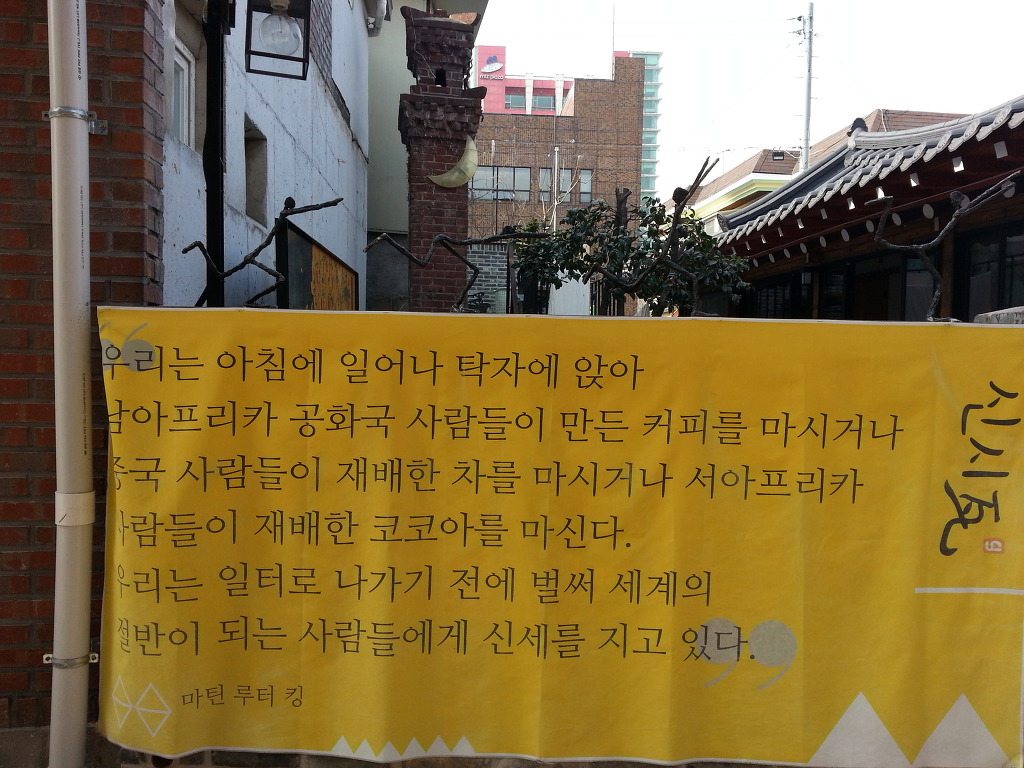 우리는 아침에 일어나 탁자에 앉아
남아프리카 공화국 사람들이 만든 커피를 마시거나
중국 사람들이 재배한 차를 마시거나 서아프리카
사람들이 재배한 코코아를 마신다.
우리는 일터로 나가기 전에 벌써 세계의
절반이 되는 사람들에게 신세를 지고 있다.
마틴 루터 킹